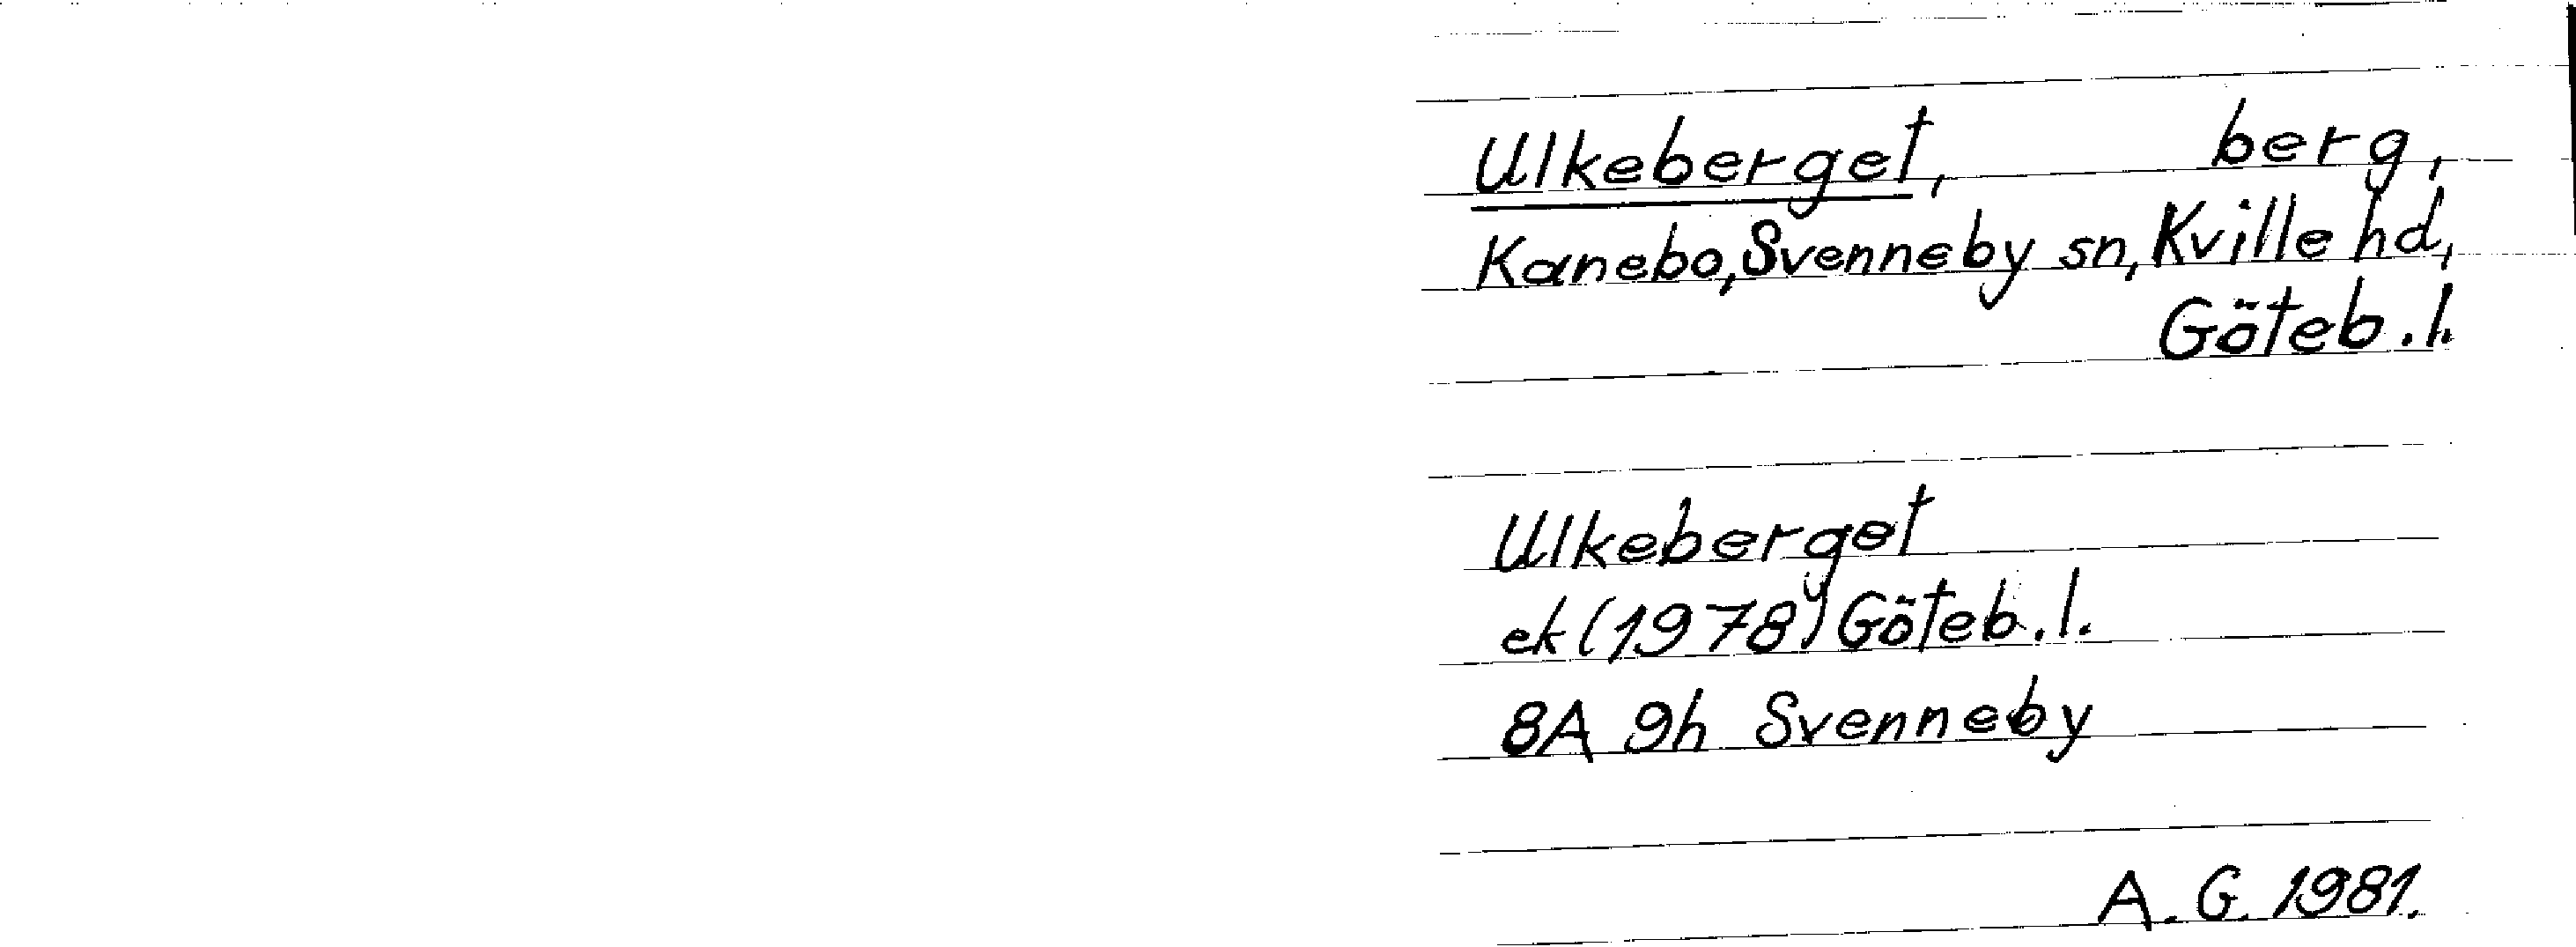 Ulkeberget, berg,
Kanebo, Svenneby sn, Kville hd,
Göteb. l.
Ulkeberget
ek (1978) Göteb. l.
8A 9h Svenneby
A. G. 1981.